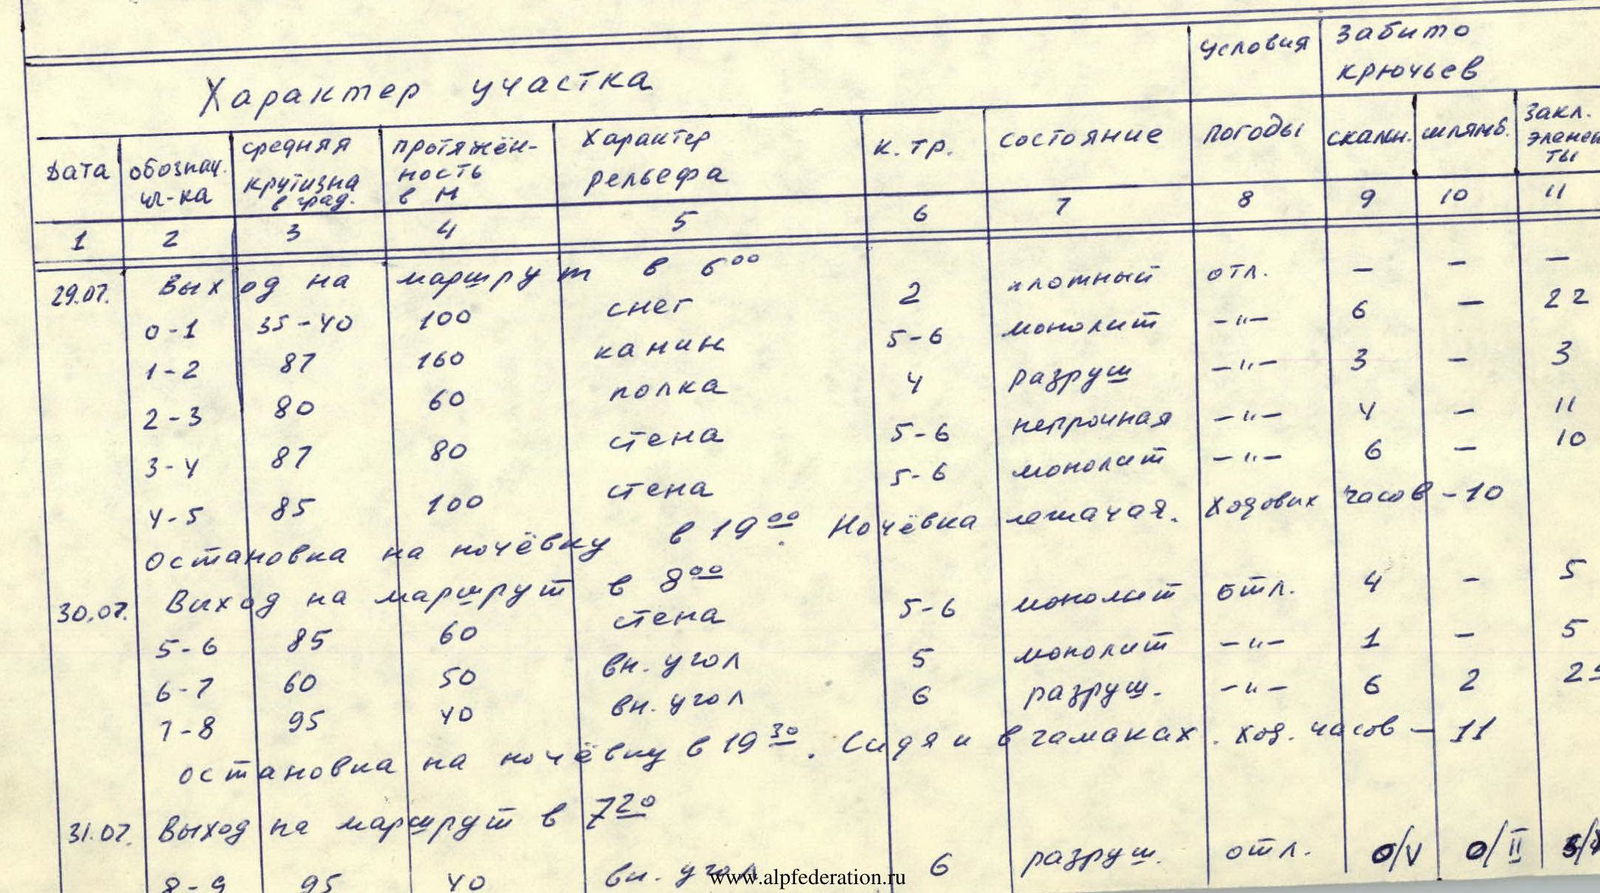 Характер участка Условия Забито
крючьев
Дата обознач. уч-ка средняя крутизна в град. протяжён-ность в м Характер рельефа к. тр. состояние погоды скальн. шлямб. Закл. элемен ты
1 2 3 4 5 6 7 8 9 10 11
29.07. Выход на маршрут в 6⁰⁰
0-1 35-40 100 снег 2 плотный отл. — — —
1-2 87 160 камин 5-6 монолит -"- 6 — 22
2-3 80 60 полка 4 разруш -"- 3 - 3
3-4 87 80 стена 5-6 непрочная -"- 4 - 11
4-5 85 100 стена 5-6 монолит -"- 6 - 10
остановка на ночёвку в 19⁰⁰. Ночёвка лежачая. Ходових часов - 10
30.07. Выход на маршрут в 8⁰⁰
5-6 85 60 стена 5-6 монолит отл. 4 - 5
6-7 60 50 вн. угол 5 монолит -"- 1 - 5
7-8 95 40 вн. угол 6 разруш. -"- 6 2
остановка на ночёвку в 19³⁰. Сидя и в гамаках. ход. часов - 11
31.07. Выход на маршрут в 7²⁰
8-9 95 40 вн. угол 6 разруш. отл. 0/V 0/II
www.alpfederation.ru